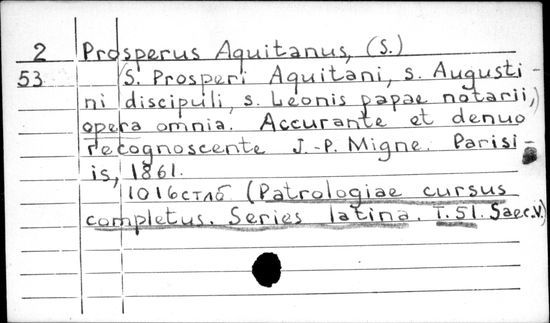 2 Prosperus Aquitanus, (S.)
53 S. Prosperi Aquitani, s. Augusti-
ni discipuli, s. Leonis papae notarii,
opera omnia. Accurante et denuo
recognoscente J.-P. Migne. Parisi-
is, 1861.
1016стлб (Patrologiae cursus
completus. Series latina. T. 51. Saec.V.)